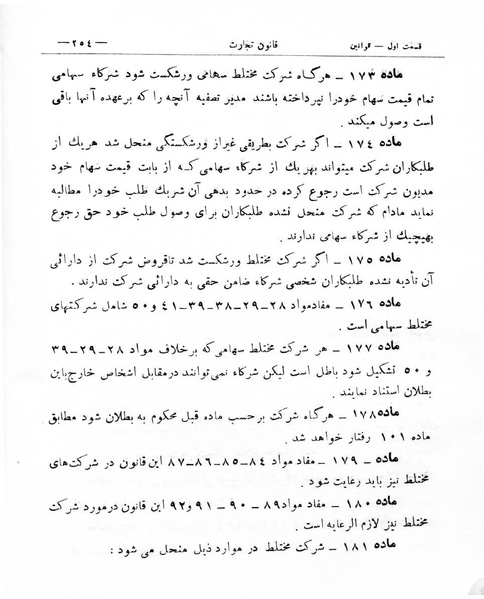 قسمت اول — قوانین قانون تجارت — ٢٥٤ —
ماده ١٧٣ ـ هرگاه شرکت مختلط سهامی ورشکست شود شرکاء سهامی
تمام قیمت سهام خودرا نپرداخته باشند مدیر تصفیه آنچه را که برعهده آنها باقی
است وصول میکند .
ماده ١٧٤ ـ اگر شرکت بطریقی غیراز ورشکستگی منحل شد هریك از
طلبکاران شرکت میتواند بهریك از شرکاء سهامی کـه از بابت قیمت سهام خود
مدیون شرکت است رجوع کرده در حدود بدهی آن شریك طلب خودرا مطالبه
نماید مادام که شرکت منحل نشده طلبکاران برای وصول طلب خود حق رجوع
بهیچیك از شرکاء سهامی ندارند .
ماده ١٧٥ ـ اگر شرکت مختلط ورشکست شد تاقروض شرکت از دارائی
آن تأدیه نشده طلبکاران شخصی شرکاء ضامن حقی به دارائی شرکت ندارند .
ماده ١٧٦ ـ مفادمواد ٢٨ـ٢٩ـ٣٨ـ٣٩ـ٤١ و٥٠ شامل شرکتهای
مختلط سهامی است .
ماده ١٧٧ ـ هر شرکت مختلط سهامی‌که برخلاف مواد ٢٨ـ٢٩ـ٣٩
و ٥٠ تشکیل شود باطل است لیکن شرکاء نمی‌توانند درمقابل اشخاص خارج‌باین
بطلان استناد نمایند .
ماده١٧٨ ـ هرگاه شرکت برحسب ماده قبل محکوم به بطلان شود مطابق
ماده ١٠١ رفتار خواهد شد .
ماده ـ ١٧٩ ـ مفاد مواد ٨٤ـ٨٥ـ٨٦ـ٨٧ این قانون در شرکت‌های
مختلط نیز باید رعایت شود .
ماده ١٨٠ ـ مفاد مواد٨٩ ـ ٩٠ ـ ٩١ و٩٢ این قانون درمورد شرکت
مختلط نیز لازم الرعایه است .
ماده ١٨١ ـ شرکت مختلط در موارد ذیل منحل می شود :